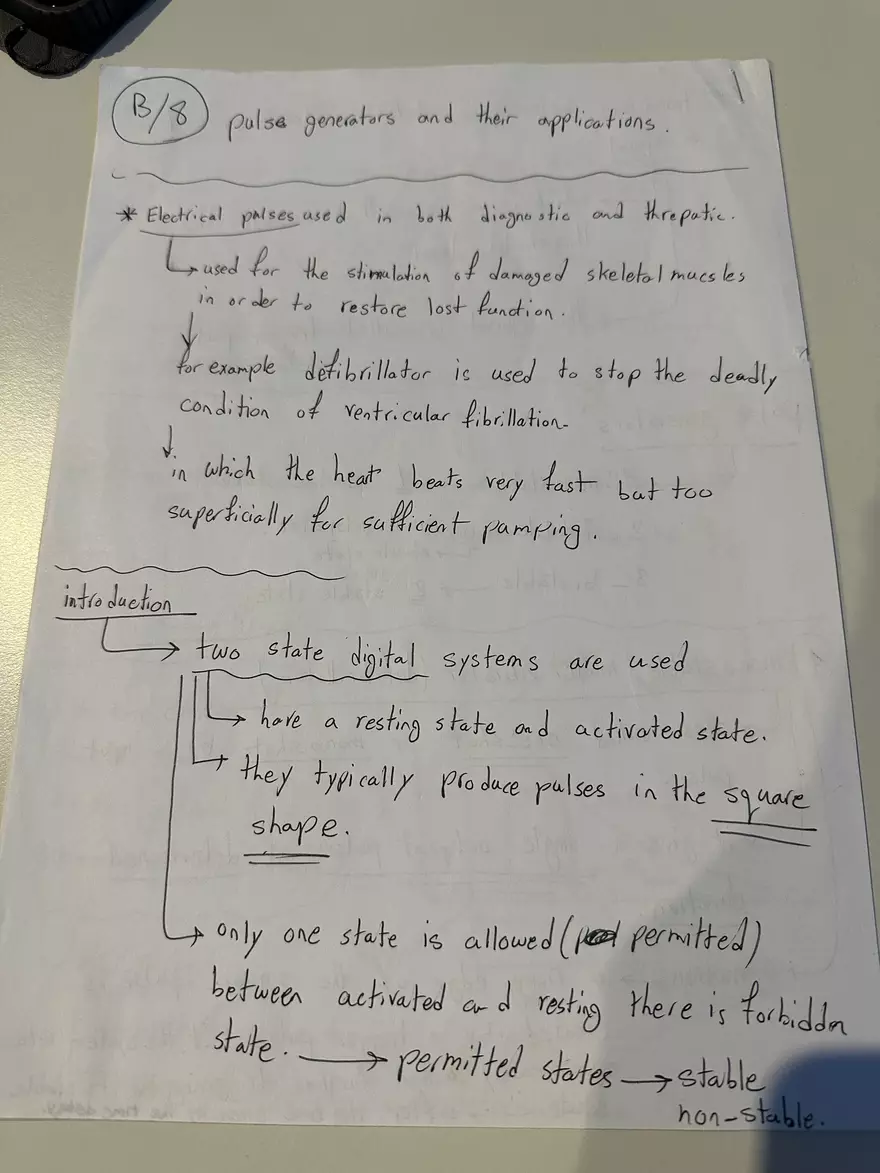 1
B/8 pulse generators and their applications.
* Electrical pulses used in both diagnostic and threpatic.
used for the stimulation of damaged skeletal mucsles
in order to restore lost function.
for example defibrillator is used to stop the deadly
condition of ventricular fibrillation.
in which the heart beats very fast but too
superficially for sufficient pumping.
introduction
two state digital systems are used
have a resting state and activated state.
they typically produce pulses in the square
shape.
only one state is allowed ( permitted)
between activated and resting there is forbidden
state. → permitted states → stable
non-stable.